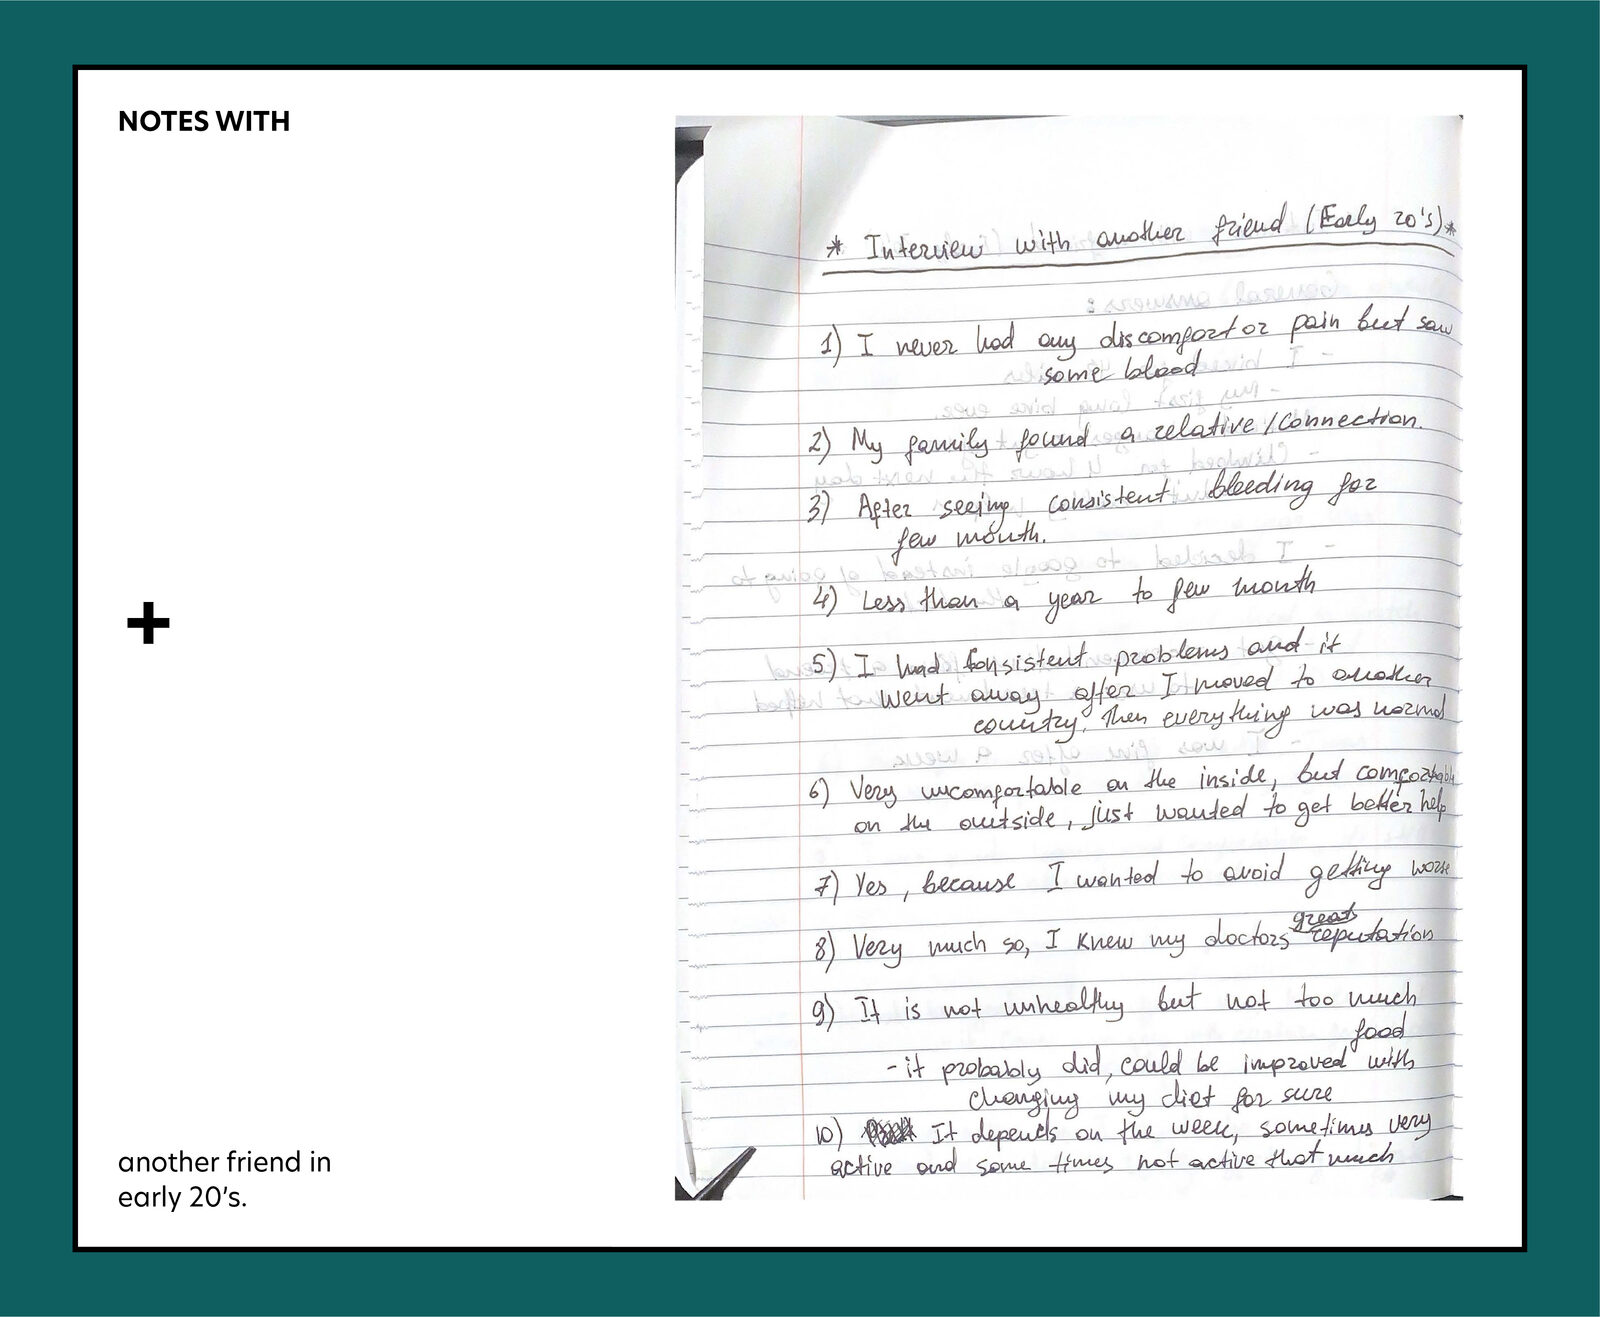 NOTES WITH
+
another friend in
early 20's.
* Interview with another friend (Early 20's) *
1) I never had any discomfort or pain but saw
some blood
2) My family found a relative / connection.
3) After seeing consistent bleeding for
few month.
4) Less than a year to few month
5) I had consistent problems and it
went away after I moved to another
country. Then everything was normal
6) Very uncomfortable on the inside, but comfortable
on the outside, just wanted to get better help
7) Yes, because I wanted to avoid getting worse
great
8) Very much so, I knew my doctors reputation
9) It is not unhealthy but not too much
food
- it probably did, could be improved with
changing my diet for sure
10) It depends on the week, sometimes very
active and some times not active that much